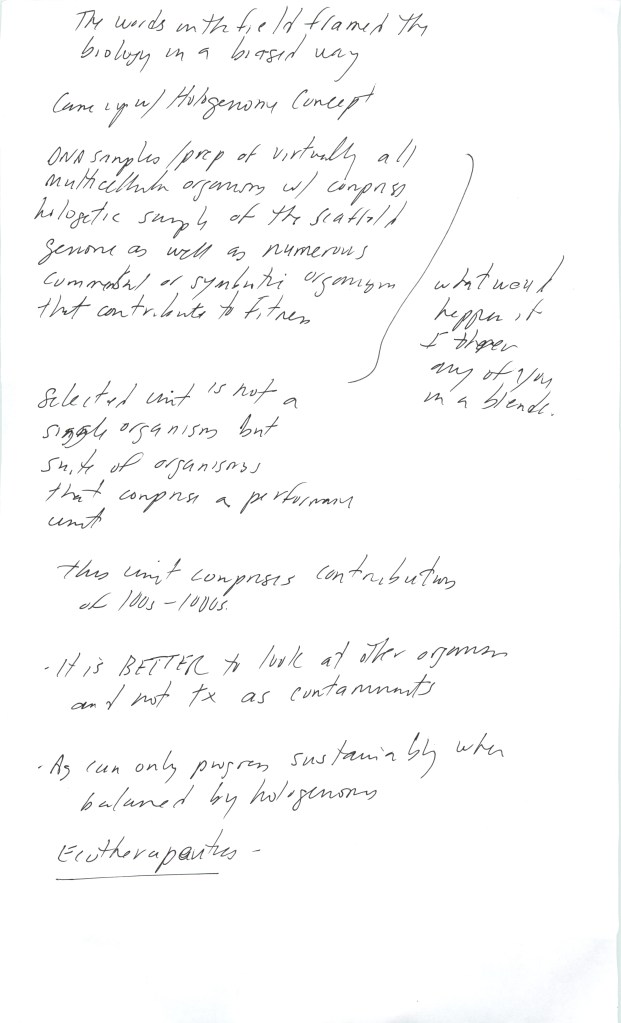 The words in the field framed the
biology in a biased way
Came up w/ Hologenome Concept
DNA samples/prep of virtually all
multicellular organism w/ comprise
sample of the scaffold
genome as well as numerous
commensal or symbiotic organism
that contribute to fitness
what would
happen if
I threw
any of you
in a blender.
Selected unit is not a
single organism but
suite of organisms
that comprise a performance
unit
This unit comprises contributions
of 100s-1000s.
- It is BETTER to look at other organism
and not tx as contaminants
- Ag can only progress sustainably when
balanced by hologenomes
Ecotherapeutics -